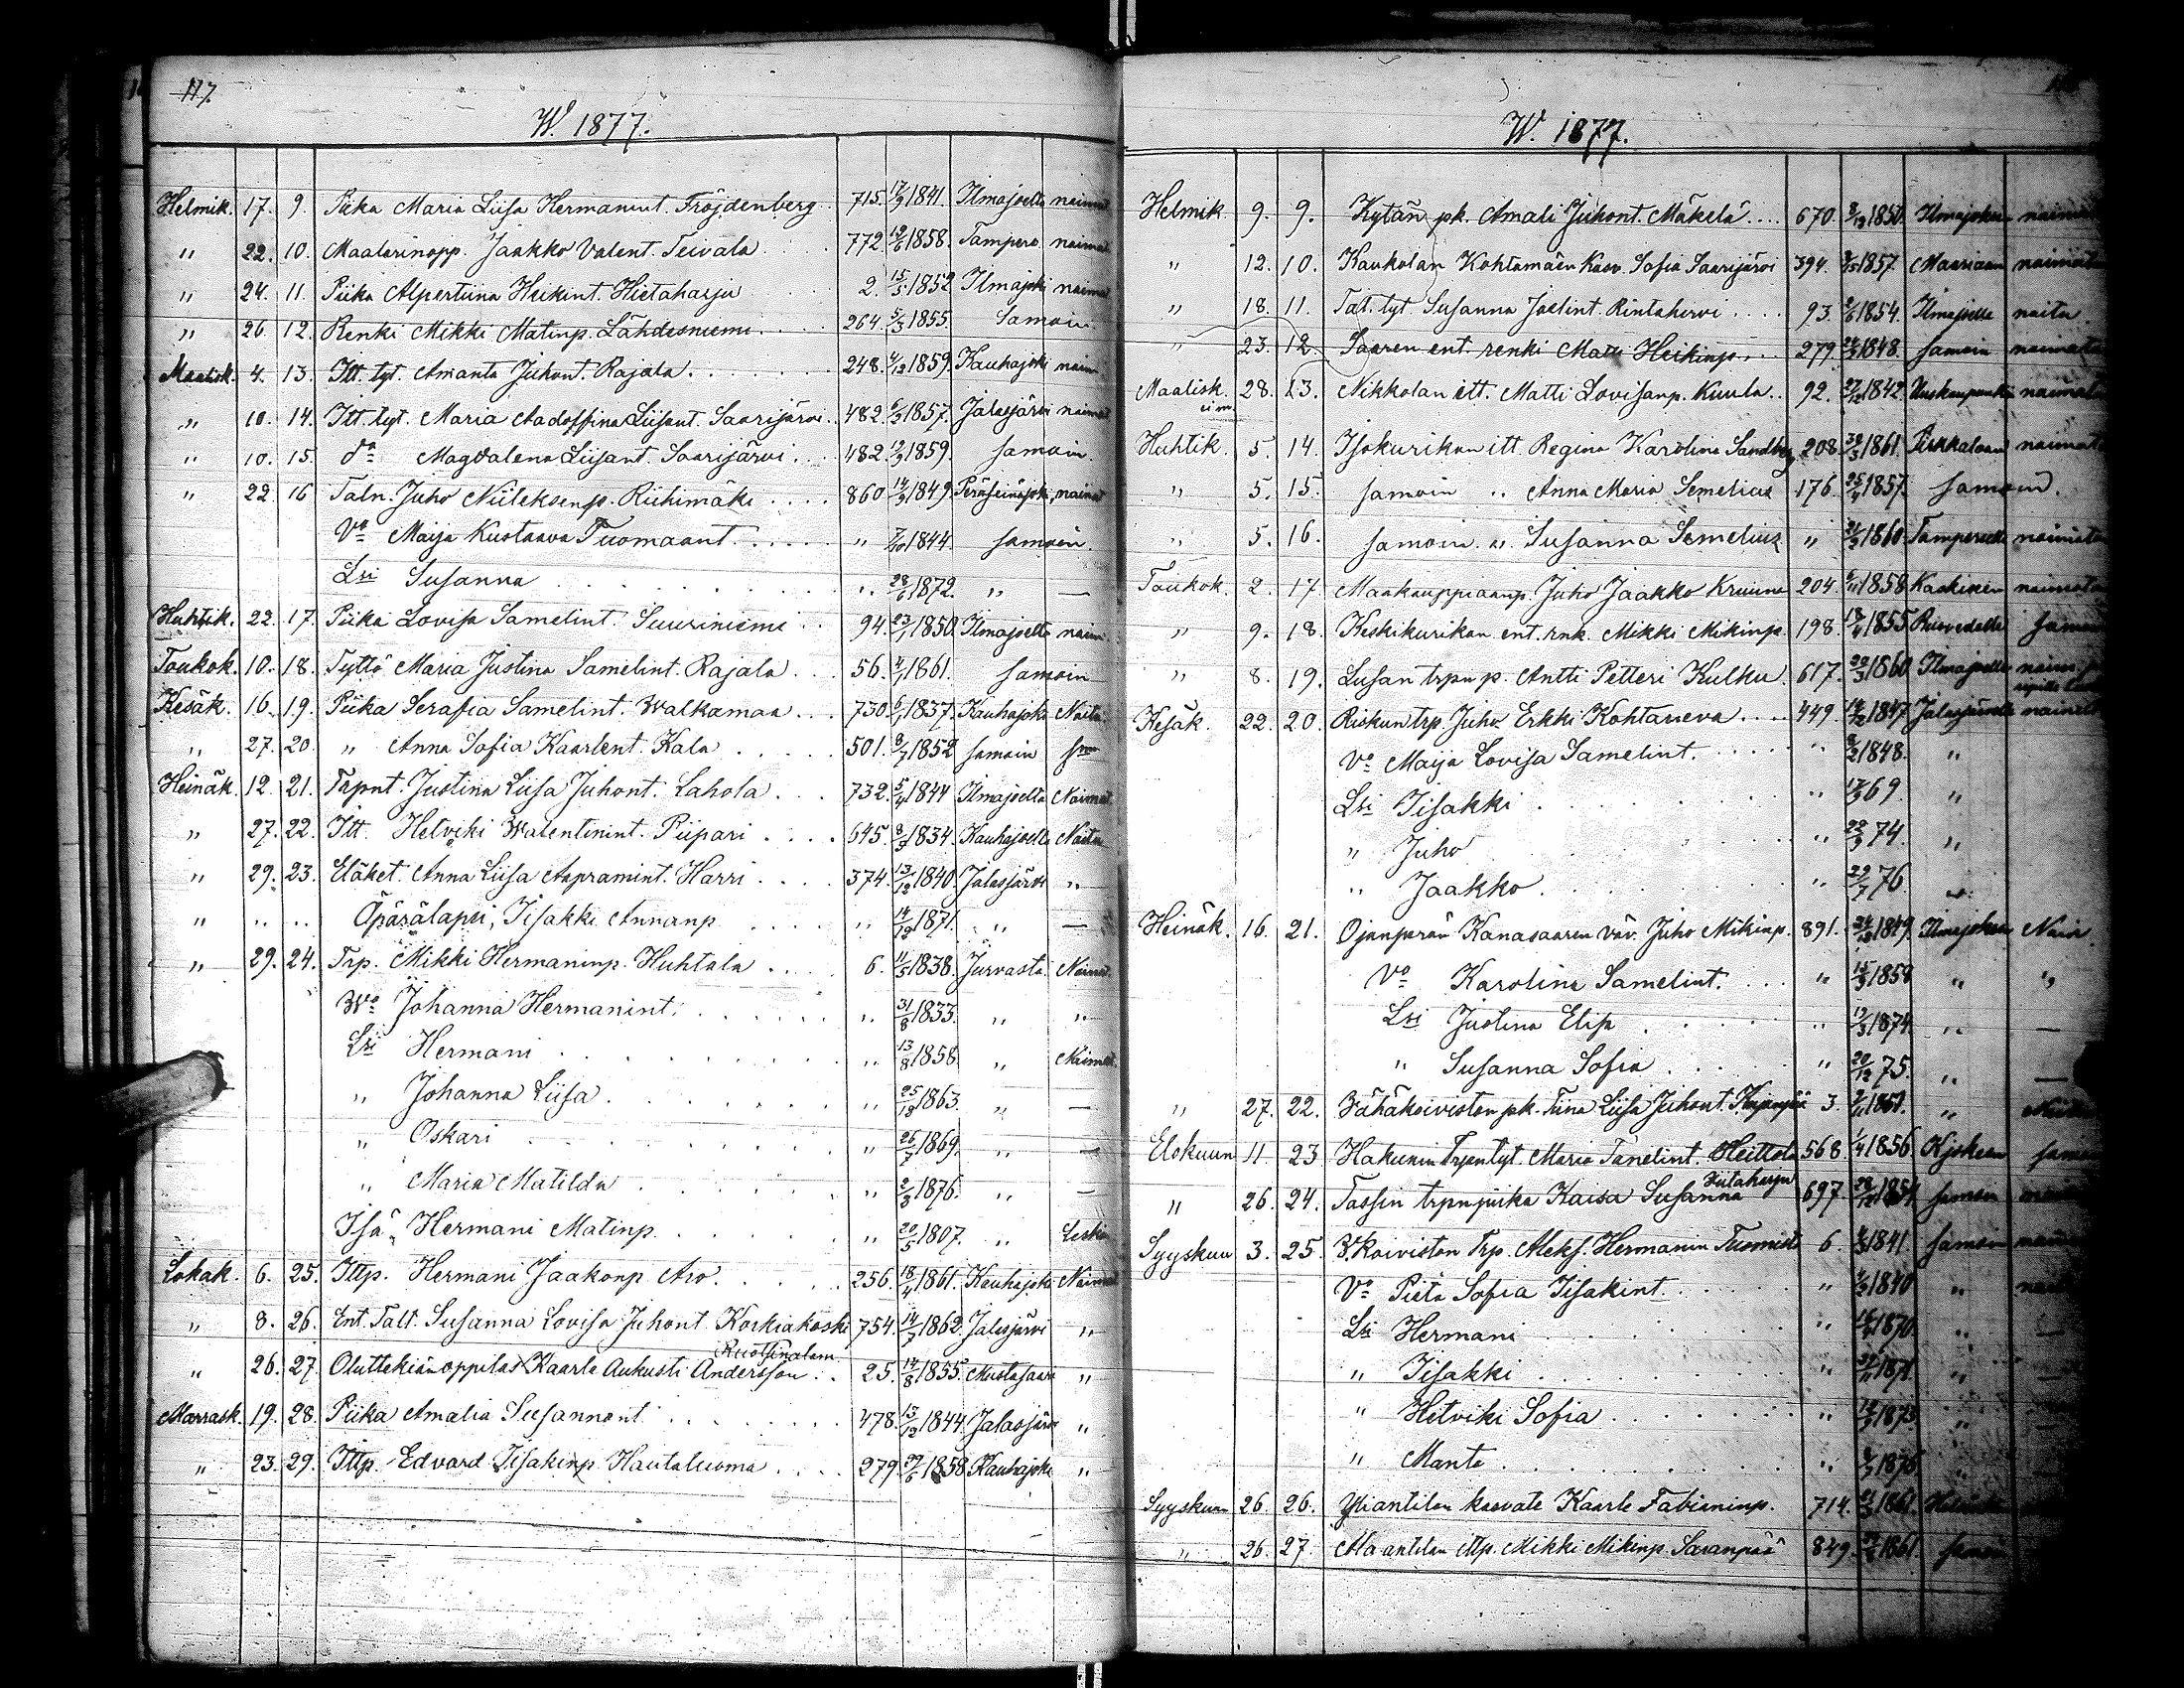 117.
W. 1877.
Helmik. 17. 9. Piika Maria Liisa Hermanint. Fröjdenberg 715. 17/9 1841. Ilmajoelta naimat
" 22. 10. Maalarinopp. Jaakko Valent. Teivala 772 19/6 1858. Tampere naimat
" 24. 11. Piika Alpertiina Heikint. Hietaharju 2. 15/5 1852 Ilmajoki naimat
" 26. 12. Renki Mikki Matinp. Lähdesniemi 264. 5/3 1855. Samoin
Maalisk. 4. 13. Itt. tyt. Amanta Juhont. Rajala 248. 4/12 1859. Kauhajoki naim
" 10. 14. Itt. tyt. Maria Aadolfina Liisant. Saarijärvi 482. 6/3 1857. Jalasjärvi naimat
" 10. 15. do Magdalena Liisant. Saarijärvi 482. 1859. samoin.
" 22. 16 Taln. Juho Niileksenp. Riihimäki 860 14/9 1849. Peräseinäjoki, naimat
Vo Maija Kustaava Tuomaant. " 7/10 1844. samoin.
Lsi Susanna " 28/6 1872. " —
Huhtik. 22. 17. Piika Lovisa Samelint. Suuriniemi 94. 23/1 1850. Ilmajoelta naim.
Toukok. 10. 18. Tyttö Maria Justina Samelint. Rajala 56. 4/1 1861. samoin
Kesäk. 16. 19. Piika Serafia Samelint. Walkamaa 730. 6/1 1837. Kauhajoki Naita
" 27. 20. " Anna Sofia Kaarlent. Kala 501. 8/7 1852 samoin
Heinäk. 12. 21. Trpnt. Justina Liisa Juhont. Lahola 732. 5/4 1844 Ilmajoelta Naimat.
" 27. 22. Itt. Hetviki Walentinint. Piipari 645. 8/3 1834. Kauhajoelta Naitu
" 29. 23. Eläket. Anna Liisa Aapramint. Harri 374. 13/12 1840. Jalasjärvi "
" " " Äpärälapsi, Iisakki Annanp " 14/12 1871. " —
" 29. 24. Trp. Mikki Hermaninp. Huhtala 6. 11/5 1838. Jurvasta Naimat.
Wo Johanna Hermanint. " 31/8 1833. " "
Lsi Hermani " 13/8 1858. " Naimat.
" Johanna Liisa " 25/12 1863. " —
" Oskari " 26/7 1869. " —
" Maria Matilda " 2/3 1876. " —
Isä " Hermani Matinp. " 20/5 1807. " Leski
Lokak. 6. 25. Ittp. Hermani Jaakonp Aro 256. 18/4 1861. Kauhajoki Naimat
" 8. 26. Ent. Talt. Susanna Lovisa Juhont Korkiakoski 754. 14/7 1862. Jalasjärvi "
Ruotsinalam.
" 26. 27. Oluttekiän oppilas Kaarle Aukusti Andersson 25. 14/8 1855. Mustasaari "
Marrask. 19. 28. Piika Amalia Susannant 478. 13/12 1844. Jalasjärvi "
" 23. 29. Ittp. Edvard Iisakinp Hautaluoma 279. 29/6 1858 Kauhajoki "
W. 1877.
Helmik. 9. 9. Kytän pk. Amali Juhont. Mäkelä 670. 8/12 1850. Ilmajokeen naimat
" 12. 10. Kaukolan Kohtamäen Kasv. Sofia Saarijärvi 394. 1857. Maariaan naimat
" 18. 11. Tal. tyt. Susanna Joelint. Rintahirvi 93. 2/6 1854. Ilmajoelle naitu
" 23. 12. Saaren ent. renki Matti Heikinp. 279. 24/2 1848. samoin naimat
Maalisk. 28. 13. Nikkolan itt. Matti Lovisanp. Kuula 92. 27/12 1842. Uuskaupunkiin naimat
Huhtik. 5. 14. Isokurikan itt Regina Karolina Sandberg 208. 30/3 1861. Pirkkalaan naimat
" 5. 15. samoin " Anna Maria Semelius 176. 25/4 1857. samoin.
" 5. 16. samoin. " Susanna Semelius " 1860. Tampereelle naimat
Toukok. 2. 17. Maakauppiaanp. Juho Jaakko Kruuna 204. 6/11 1858 Kaskinen naimat
" 9. 18. Keskikurikan ent. rnk. Mikki Mikinp 198. 18/4 1855 Ruovedelle
" 8. 19. Lusan trpn p. Antti Petteri Kulku 617. 20/3 1860 Ilmajoelle
Kesäk. 22. 20. Riskun trp. Juho Erkki Kohtaneva 449. 1847. Jalasjärvelle
Vo Maija Lovisa Samelint. " 8/2 1848. "
Lsi Iisakki " 17/3 69. "
" Juho " 22/9 74. "
" Jaakko " 29/7 76. "
Heinäk. 16. 21. Ojanperän Kanasaaren väv. Juho Mikinp. 891. 24/12 1849. Ilmajokeen Nain.
Vo Karolina Samelint. " 15/3 1858 " "
Lsi Justina Elip " 19/3 1874. " —
" Susanna Sofia " 20/12 75. " —
" 27. 22. Vähäkoiviston pk. Tiina Liisa Juhont. 3. 1861. "
Elokuun 11. 23 Hakunin Trpn tyt. Maria Tanelint. Heittola 568 1/4 1856. Kjokeen
Hiitaharju
" 26. 24. Tassin trpn piika Kaisa Susanna 697. 1854. samoin
Syyskuu 3. 25. V. Koiviston Trp. Aleks. Hermanin Tuomisto 6. 1841. samoin
Vo Pieta Sofia Iisakint. " 1/2 1840 "
Lsi Hermani " 1870. " —
" Iisakki " 1871. " —
" Hetviki Sofia " 1873. "
" Manta " 1876
Syyskuun 26. 26. Yliantilan kasvate Kaarle Fabianinp. 714. 1861.
" 26. 27. Ala antilan ittp. Mikki Mikinp. Saranpää 849. 1861.